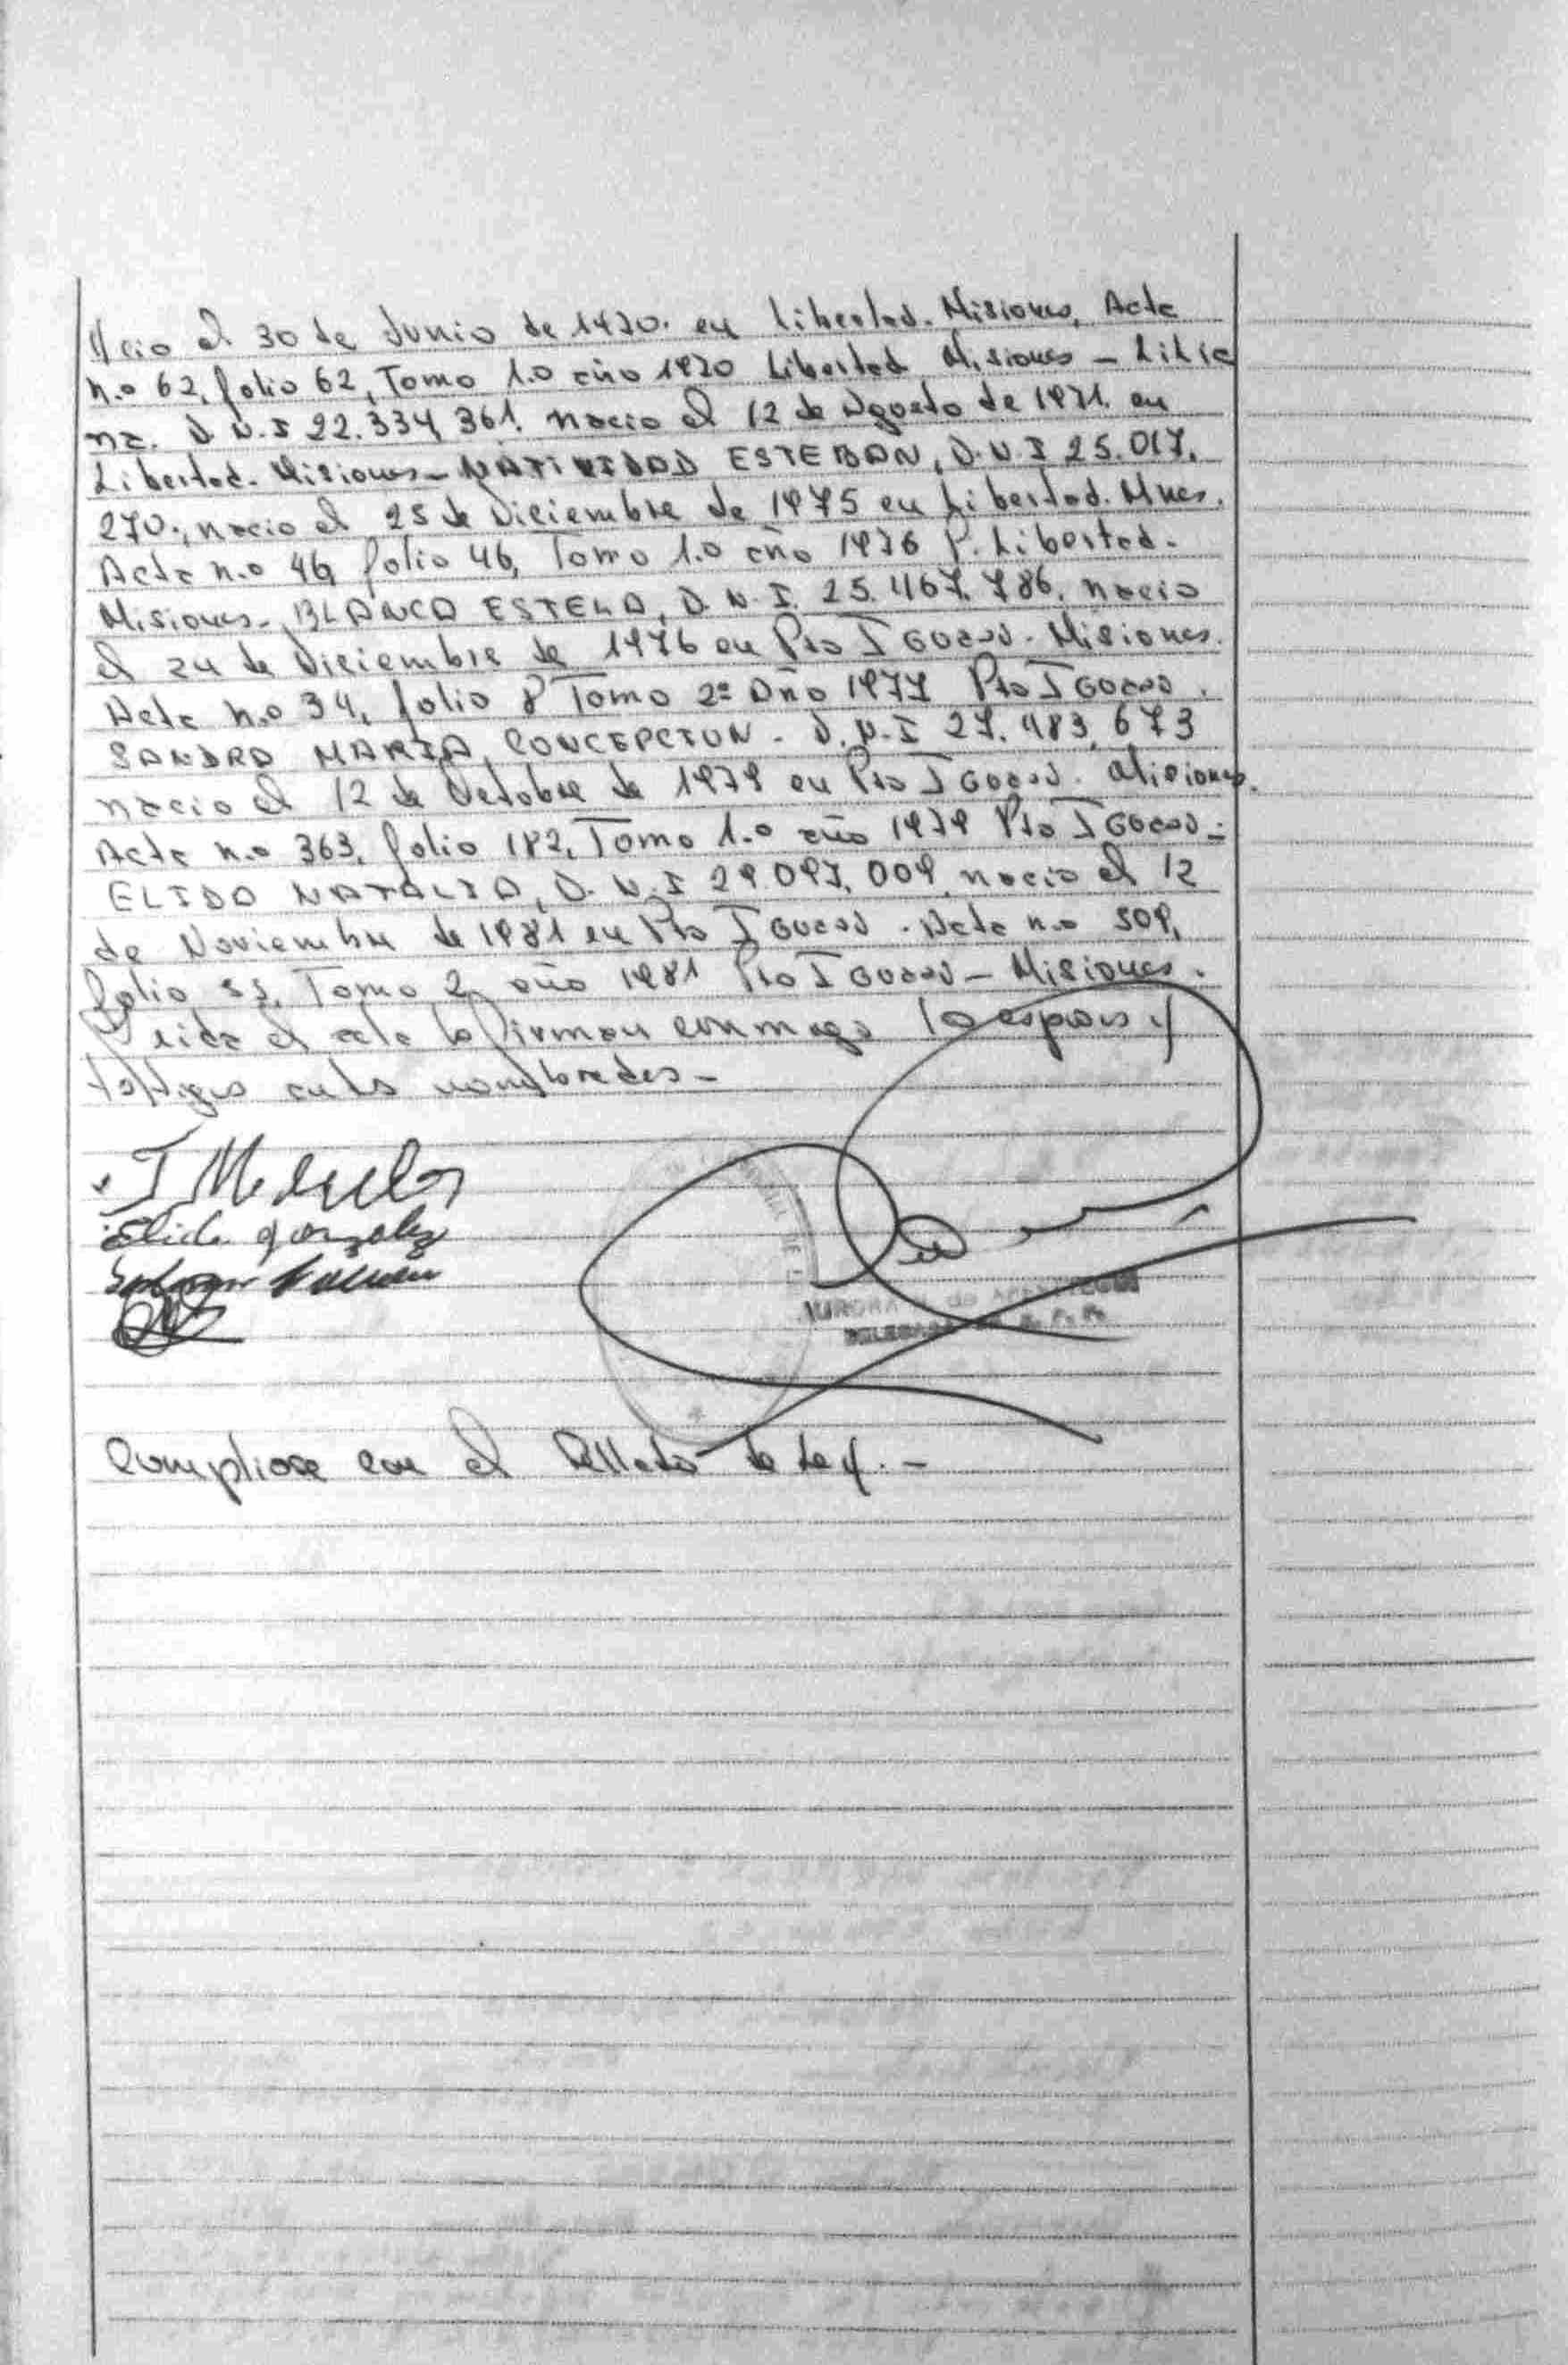 Nacio el 30 de Junio de 1970. en Libertad. Misiones, Acta
n.o 62, folio 62, Tomo 1.o año 1970 Libertad Misiones - Lilia
na. D.N.I 22.334,361. nacio el 12 de Agosto de 1971. en
Libertad. Misiones - NATIVIDAD ESTEBAN, D.N.I 25.017.
270., nacio el 25 de Diciembre de 1975 en Libertad. Mnes.
Acta n.o 46, folio 46, Tomo 1.o año 1976 P. Libertad.
Misiones - BLANCA ESTELA, D.N.I. 25.467.786. nacio
el 24 de Diciembre de 1976 en Pto IGUAZU. Misiones.
Acta n.o 34, folio 8 Tomo 2º Año 1977 Pto IGUAZU.
SANDRA MARIA CONCEPCION - D.N.I 27.483,673
nacio el 12 de Octubre de 1979 en Pto IGUAZU. Misiones.
Acta n.o 363, folio 182, Tomo 1.o año 1979 Pto IGUAZU -
ELIDA NATALIA, D.N.I 29.097,009, nacio el 12
de Noviembre de 1981 en Pto IGUAZU. Acta n.o 509,
folio 55, Tomo 2, año 1981 Pto IGUAZU - Misiones.
Leida el acta la firman conmigo lo esposos y
testigos nombrados -
Elida gonzalez
AURORA de
DELEGADA
Cumpliose con el Sellado de Ley. -